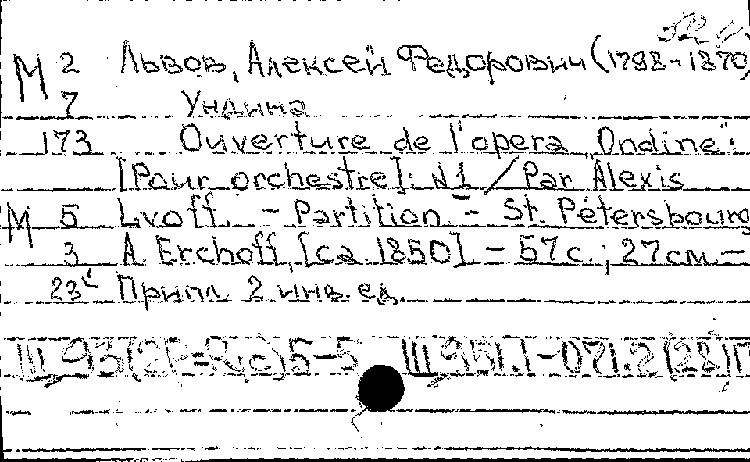 М 2 Львов, Алексей Федорович (1798-1870)
7 Ундина
173 Ouverture de l'opera "Ondine":
[Pour orchestre]: N1 / Par Alexis
М 5 Lvoff. - Partition. - St. Pétersbourg
3 A. Erchoff, [ca 1850] - 57 с.; 27 см. -
23 Припл. 2 инв. ед.
Ш 93(2Р=Рус)5-5 Ш 951.1-071.2(28)П